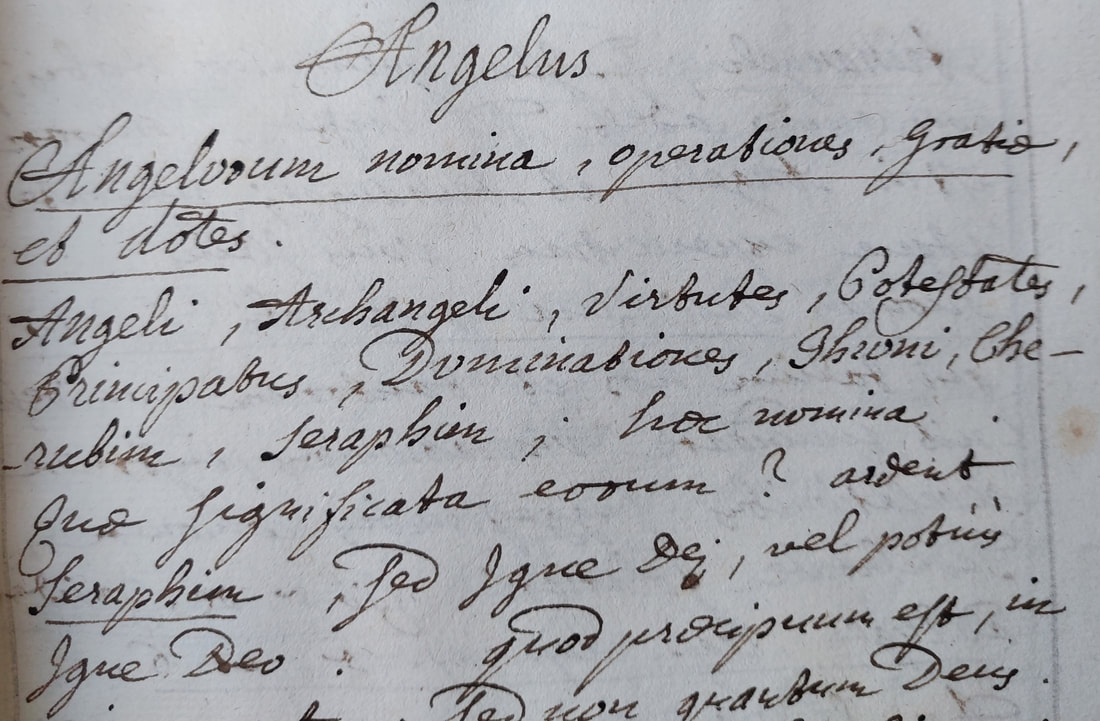 Angelus
Angelorum nomina, operationes, Gratiæ,
et dotes.
Angeli, Archangeli, Virtutes, Potestates,
Principatus, Dominationes, Throni, Che-
-rubim, Seraphim; hæc nomina.
Quæ significata eorum? ardent
Seraphim, sed Igne Dei, vel potiùs
Igne Deo quod præcipuum est, in
sed non quantum Deus.